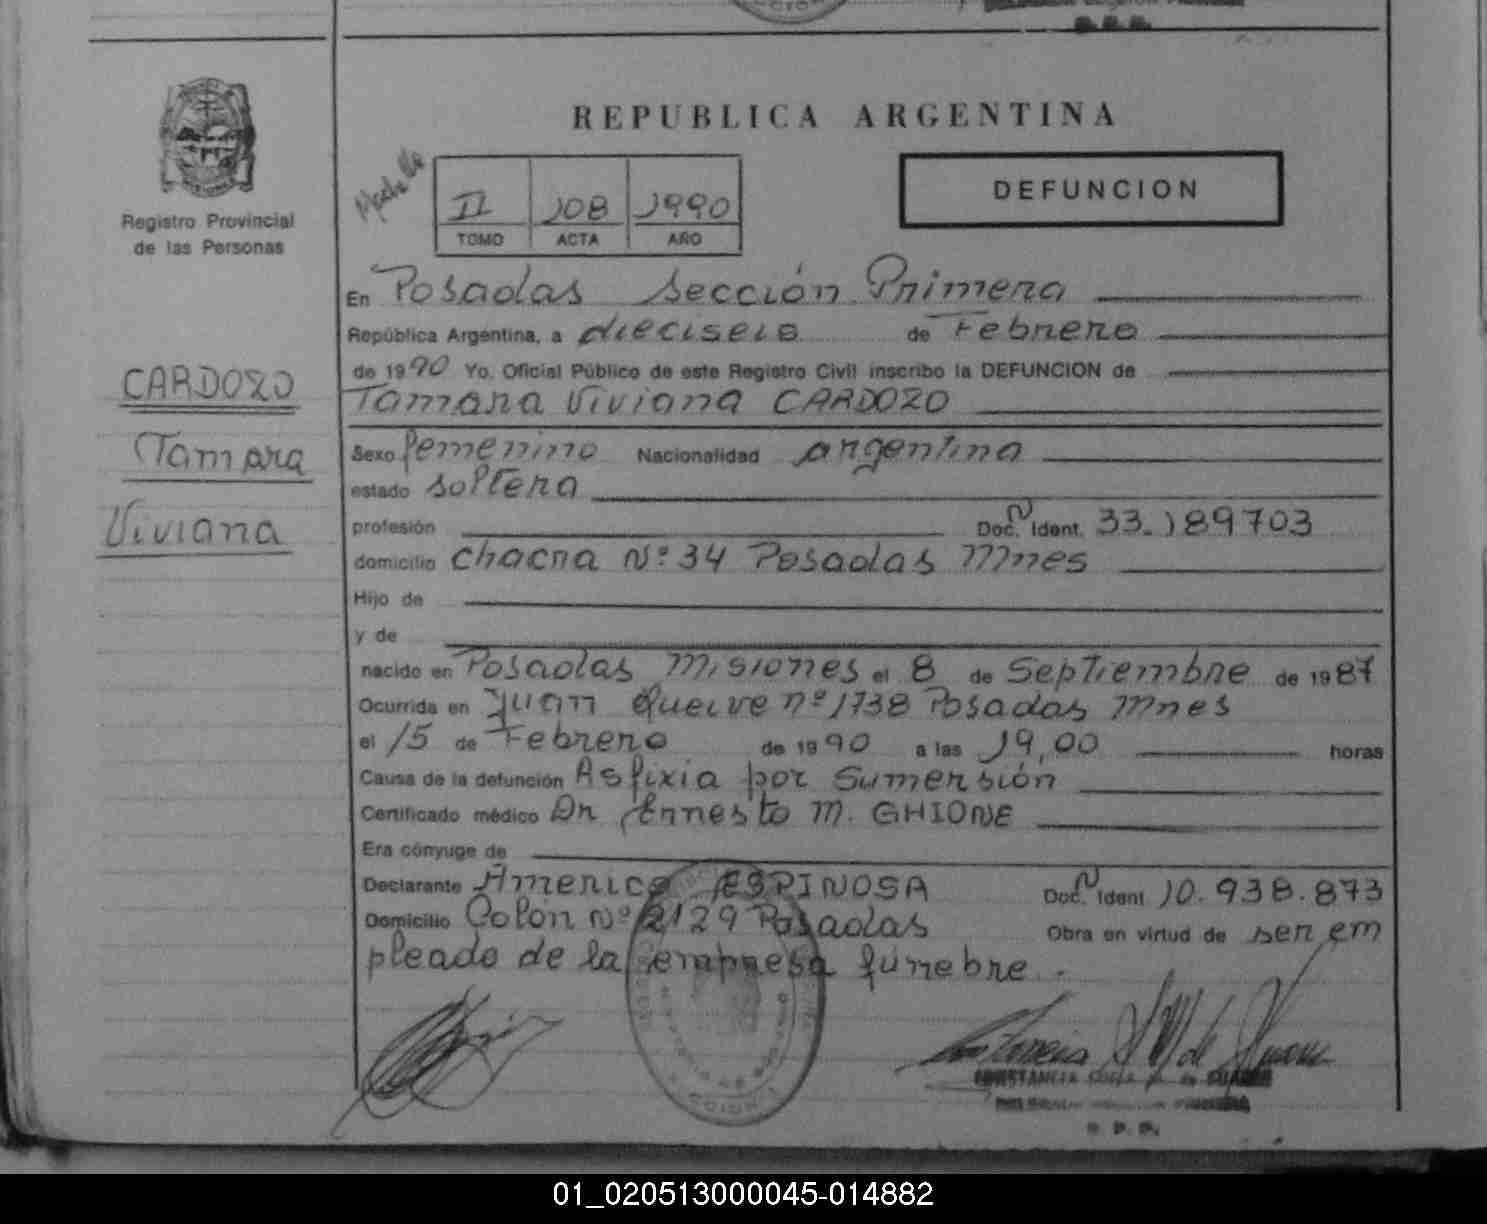 REPUBLICA ARGENTINA
DEFUNCION
II 108 1990
TOMO ACTA AÑO
Registro Provincial
de las Personas
CARDOZO
Tamara
Viviana
En Posadas Sección Primera
República Argentina, a dieciseis de Febrero
de 1990 Yo, Oficial Público de este Registro Civil inscribo la DEFUNCION de
Tamara Viviana CARDOZO
Sexo femenino Nacionalidad argentina
estado soltera
profesión Doc. N Ident. 33.189703
domicilio chacra Nº 34 Posadas Mnes
Hijo de
y de
nacido en Posadas Misiones el 8 de Septiembre de 1987
Ocurrida en Juan Queirve nº 1738 Posadas Mnes
el 15 de Febrero de 1990 a las 19,00 horas
Causa de la defunción Asfixia por Sumersión
Certificado médico Dr Ernesto M. GHIONE
Era cónyuge de
Declarante Americo ESPINOSA Doc. N Ident 10.938.873
Domicilio Colón Nº 2129 Posadas Obra en virtud de ser em
pleado de la empresa funebre.
CONSTANCIA
01_020513000045-014882